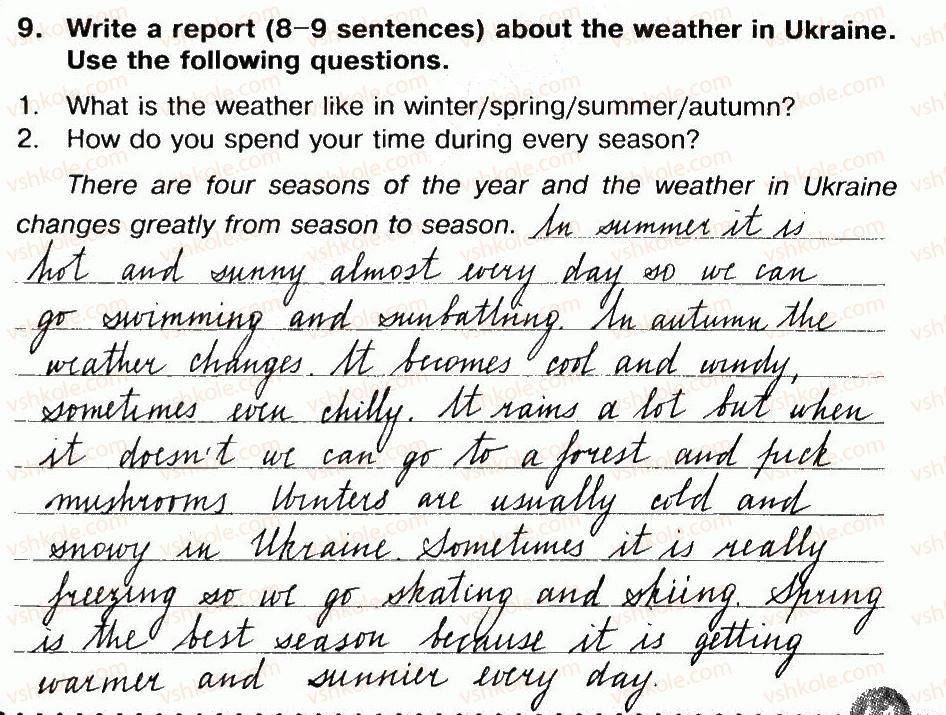 9. Write a report (8–9 sentences) about the weather in Ukraine.
Use the following questions.
1. What is the weather like in winter/spring/summer/autumn?
2. How do you spend your time during every season?
There are four seasons of the year and the weather in Ukraine
changes greatly from season to season. In summer it is
hot and sunny almost every day so we can
go swimming and sunbathing. In autumn the
weather changes. It becomes cool and windy,
sometimes even chilly. It rains a lot but when
it doesn't we can go to a forest and pick
mushrooms Winters are usually cold and
snowy in Ukraine. Sometimes it is really
freezing so we go skating and skiing. Spring
is the best season because it is getting
warmer and sunnier every day.
vshkole.com